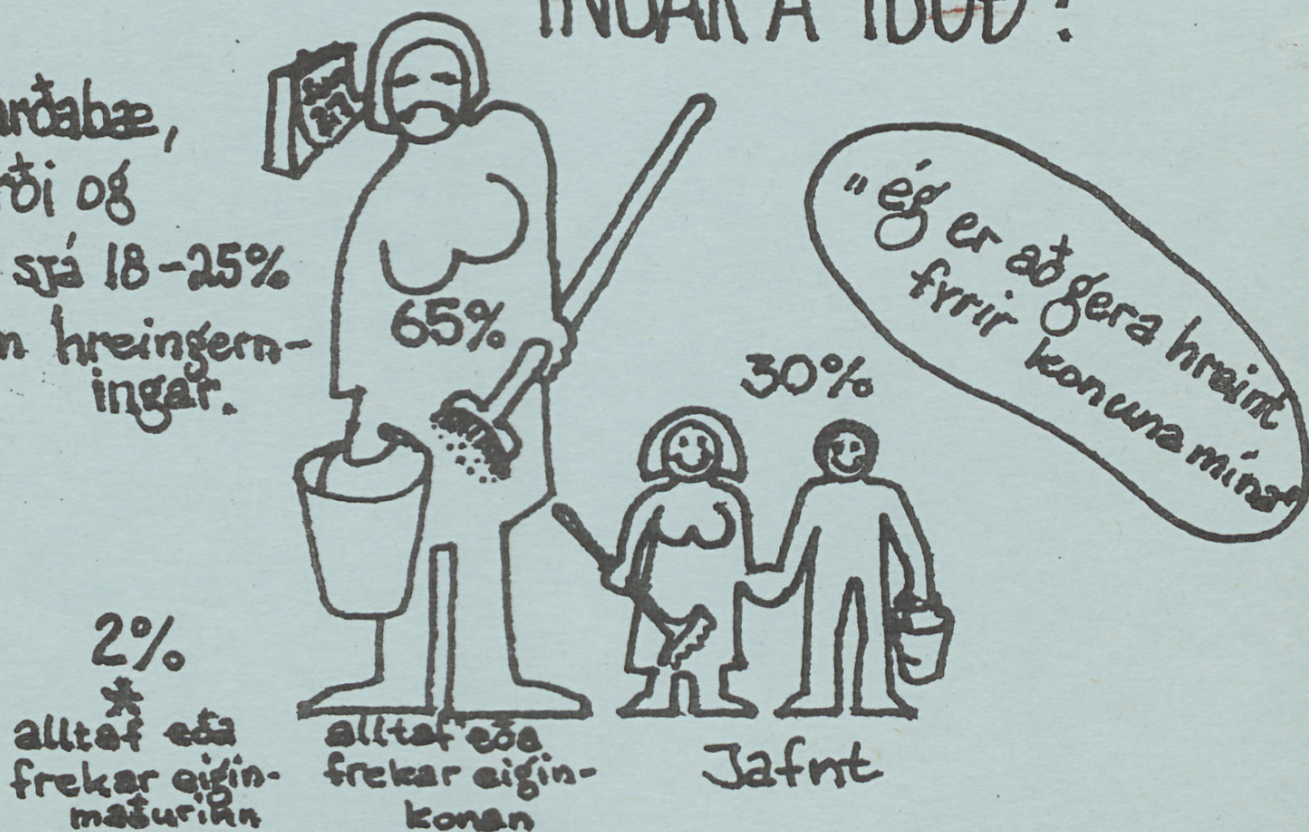 INGAR Á ÍBÚÐ?
arðabæ,
rði og
sjá 18-25%
n hreingern-
ingar.
65%
30%
"ég er að gera hreint
fyrir konuna mína"
2%
*
alltaf eða
frekar eigin-
maðurinn
alltaf eða
frekar eigin-
konan
Jafnt